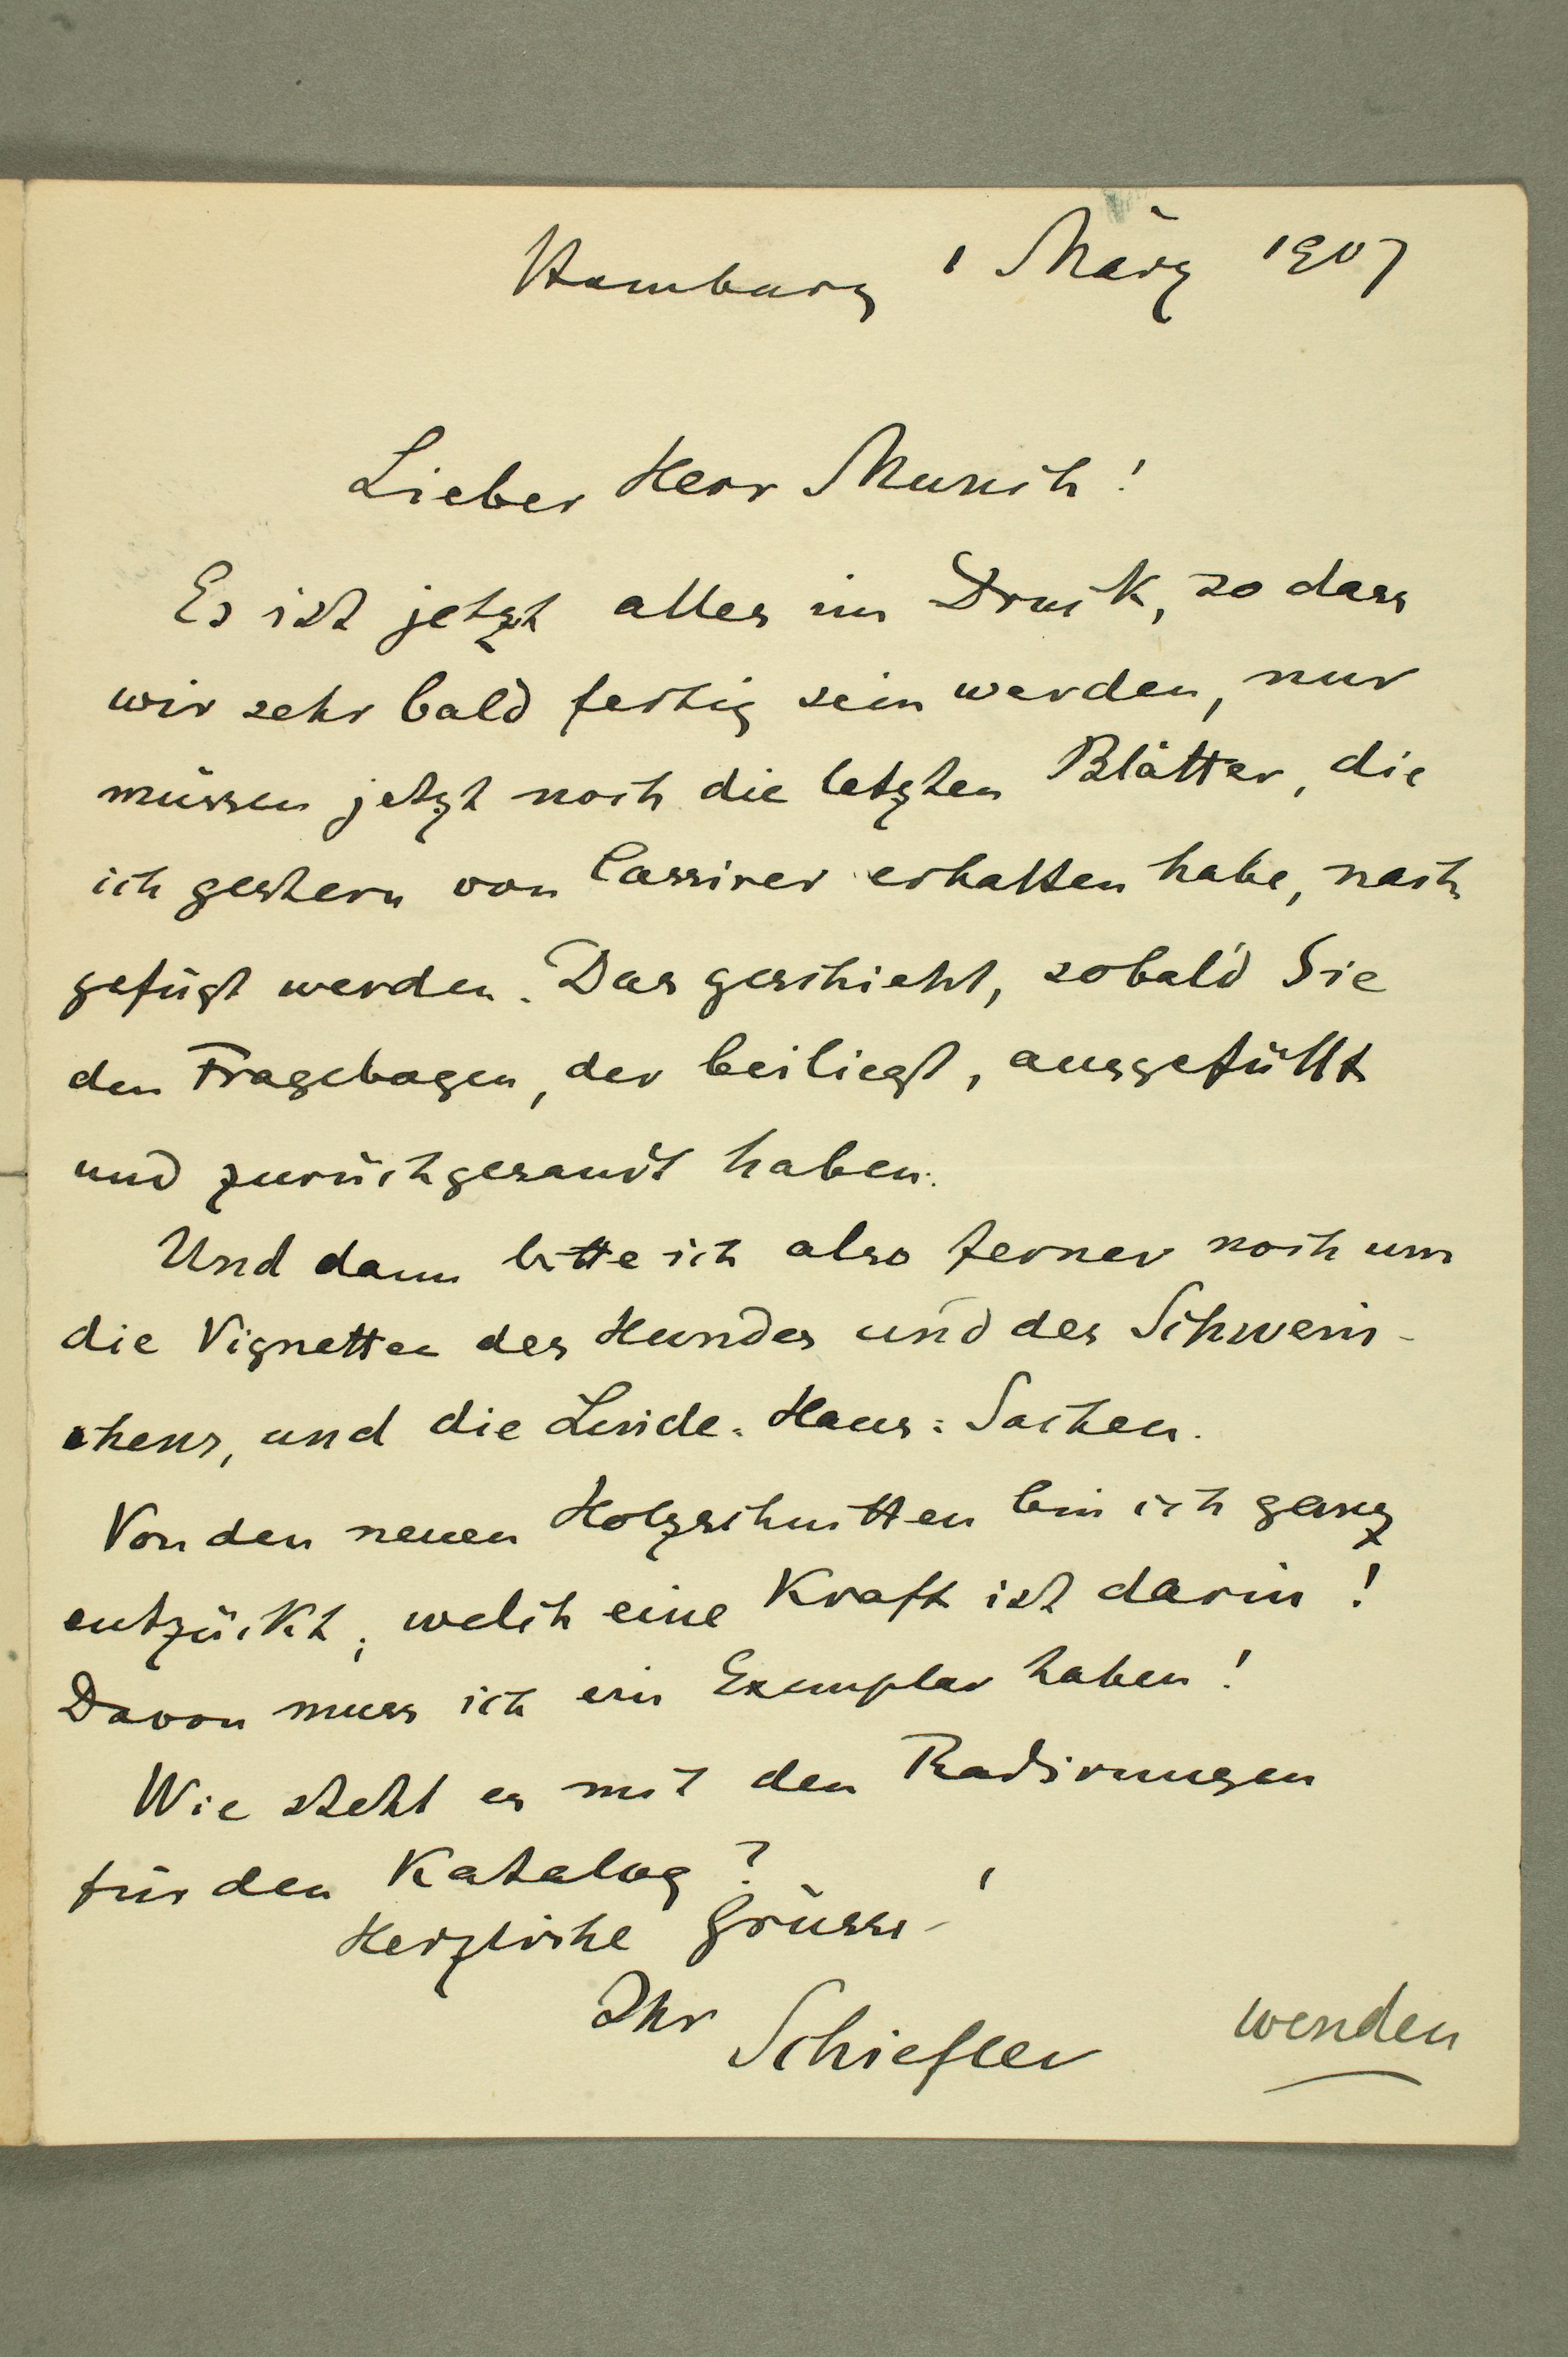 Hamburg 1 März 1907
Lieber Herr Munch!
Es ist jetzt alles im Druck, so dass
wir sehr bald fertig sein werden, nur
müssen jetzt noch die letzten Blätter, die
ich gestern von Cassirer erhalten habe, nach
gefügt werden. Das geschieht, sobald Sie
den Fragebogen, der beiliegt, ausgefüllt
und zurückgesandt haben.
Und dann bitte ich also ferner noch um
die Vignetten des Hundes und des Schwein-
chens, und die Linde-Haus-Sachen.
Von den neuen Holzschnitten bin ich ganz
entzückt; welch eine Kraft ist darin!
Davon muss ich ein Exemplar haben!
Wie steht es mit den Radirungen
für den Katalog?
Herzliche Grüsse
Ihr
Schiefler
wenden